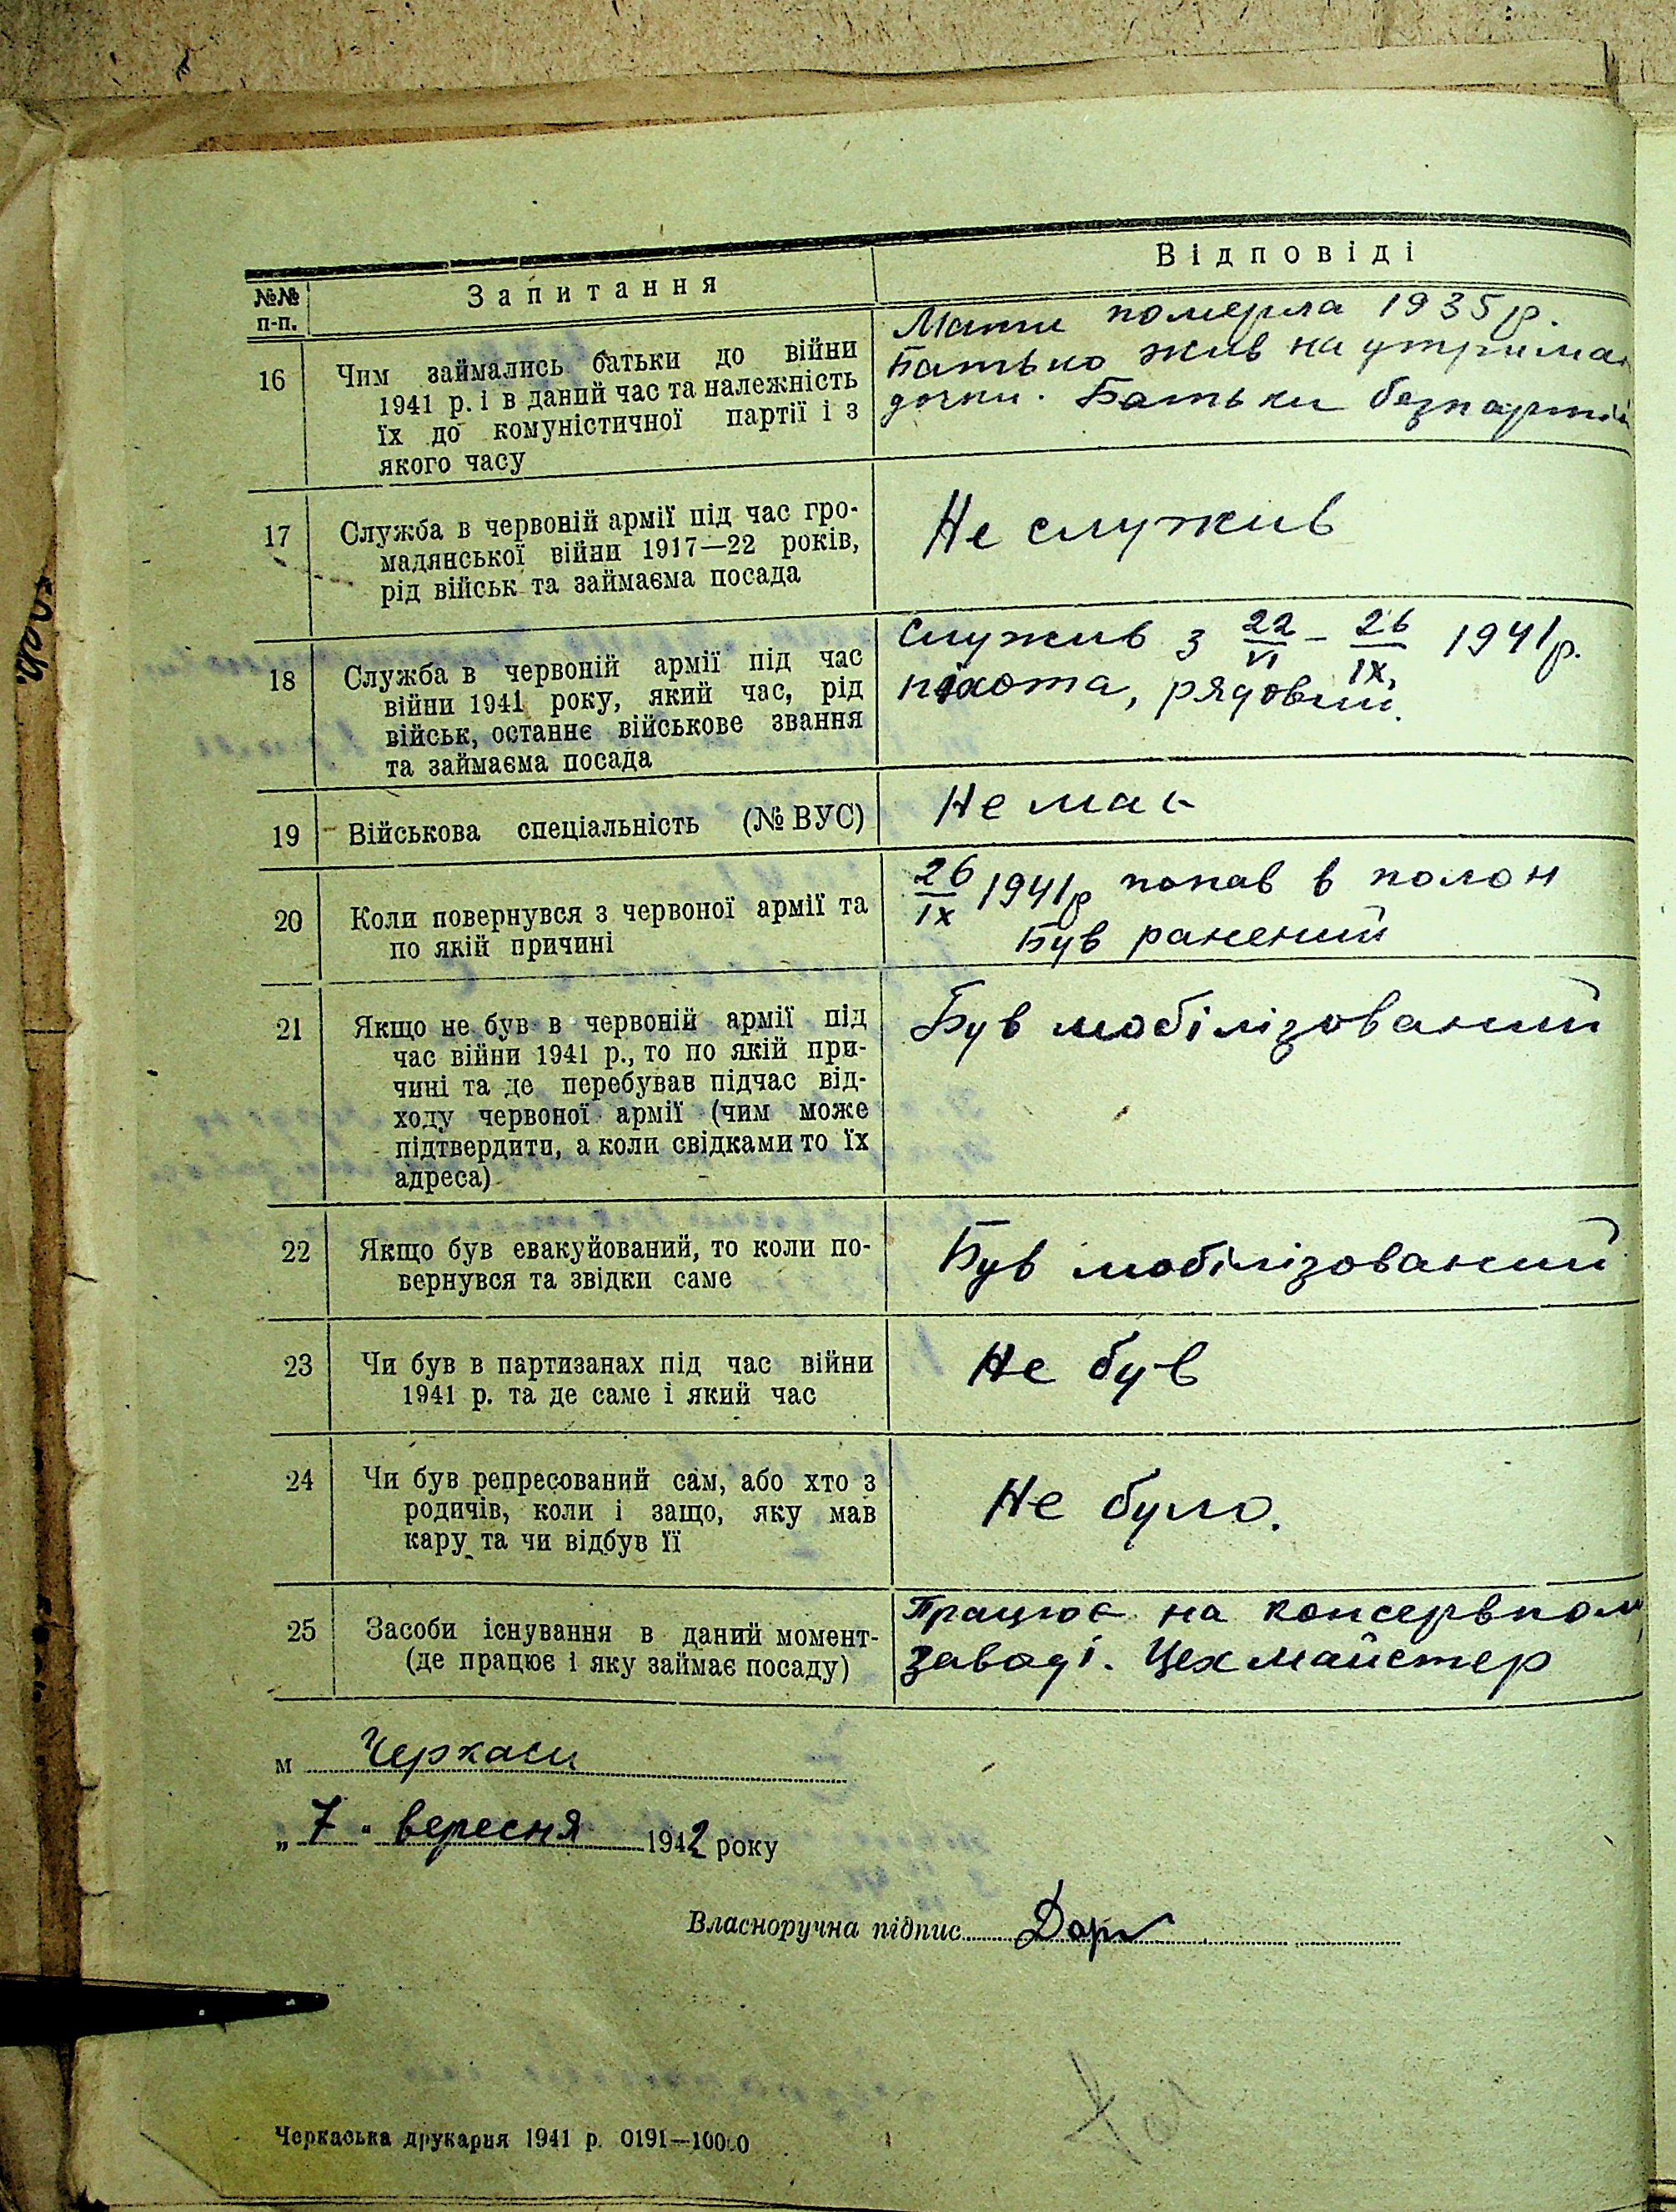 №№ п-п. Запитання Відповіді
16 Чим займались батьки до війни
1941 р. і в даний час та належність
їх до комуністичної партії і з
якого часу
Мати померла 1935 р.
Батько жив на утрима
дочки. Батьки безпартій
17 Служба в червоній армії під час гро-
мадянської війни 1917—22 років,
рід військ та займаєма посада
Не служив
18 Служба в червоній армії під час
війни 1941 року, який час, рід
військ, останнє військове звання
та займаєма посада
Служив з 22/VI – 26/IX 1941 р.
піхота, рядовий.
19 Військова спеціальність (№ ВУС)
Не має
20 Коли повернувся з червоної армії та
по якій причині
26/IX 1941 р попав в полон
Був ранений
21 Якщо не був в червоній армії під
час війни 1941 р., то по якій при-
чині та де перебував підчас від-
ходу червоної армії (чим може
підтвердити, а коли свідками то їх
адреса)
Був мобілізований
22 Якщо був евакуйований, то коли по-
вернувся та звідки саме
Був мобілізований
23 Чи був в партизанах під час війни
1941 р. та де саме і який час
Не був
24 Чи був репресований сам, або хто з
родичів, коли і защо, яку мав
кару та чи відбув її
Не було.
25 Засоби існування в даний момент-
(де працює і яку займає посаду)
Працює на консервном
заводі. Цех майстер
м Черкаси
„7" вересня 1942 року
Власноручна підпис
Черкаська друкарня 1941 р. 0191—10000